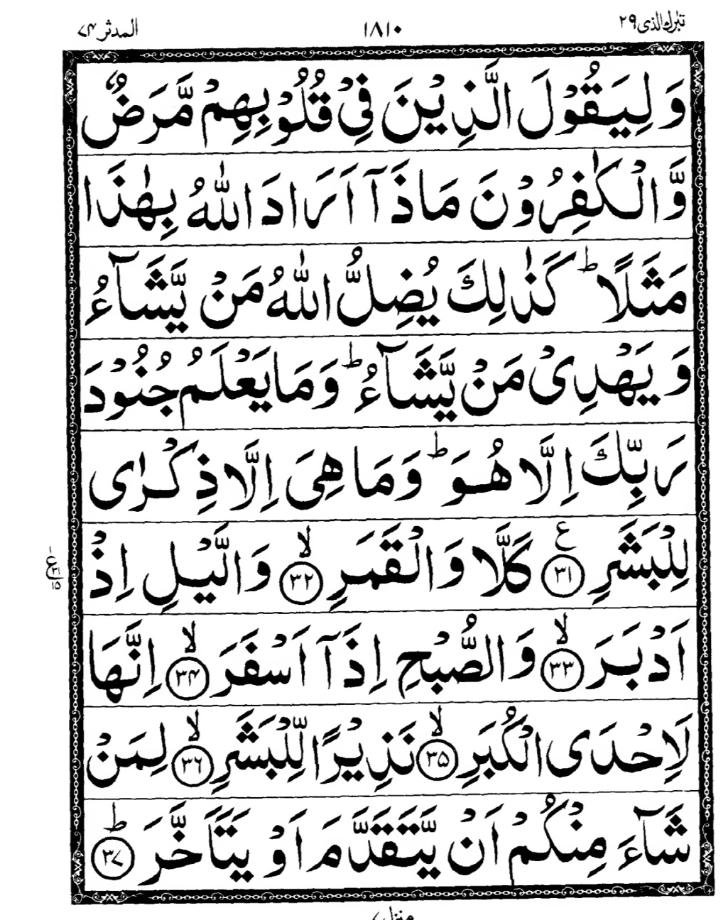 تبٰرك الذی ٢٩
١٨١٠
المدثر ٧٤
وَ لِيَقُوْلَ الَّذِيْنَ فِیْ قُلُوْبِهِمْ مَّرَضٌ
وَّالْكٰفِرُوْنَ مَاذَاۤ اَرَادَ اللّٰهُ بِهٰذَا
مَثَلًا ؕ كَذٰلِكَ يُضِلُّ اللّٰهُ مَنْ يَّشَآءُ
وَ يَهْدِیْ مَنْ يَّشَآءُ ؕ وَمَا يَعْلَمُ جُنُوْدَ
رَبِّكَ اِلَّا هُوَ ؕ وَمَا هِیَ اِلَّا ذِكْرٰی
لِلْبَشَرِ ﴿٣١﴾ ع كَلَّا وَالْقَمَرِ ﴿٣٢﴾ ۙ وَالَّيْلِ اِذْ
اَدْبَرَ ﴿٣٣﴾ ۙ وَالصُّبْحِ اِذَاۤ اَسْفَرَ ﴿٣٤﴾ ۙ اِنَّهَا
لَاِحْدَی الْكُبَرِ ﴿٣٥﴾ ۙ نَذِيْرًا لِّلْبَشَرِ ﴿٣٦﴾ ۙ لِمَنْ
شَآءَ مِنْكُمْ اَنْ يَّتَقَدَّمَ اَوْ يَتَاَخَّرَ ﴿٣٧﴾ ؕ
منزل ٧